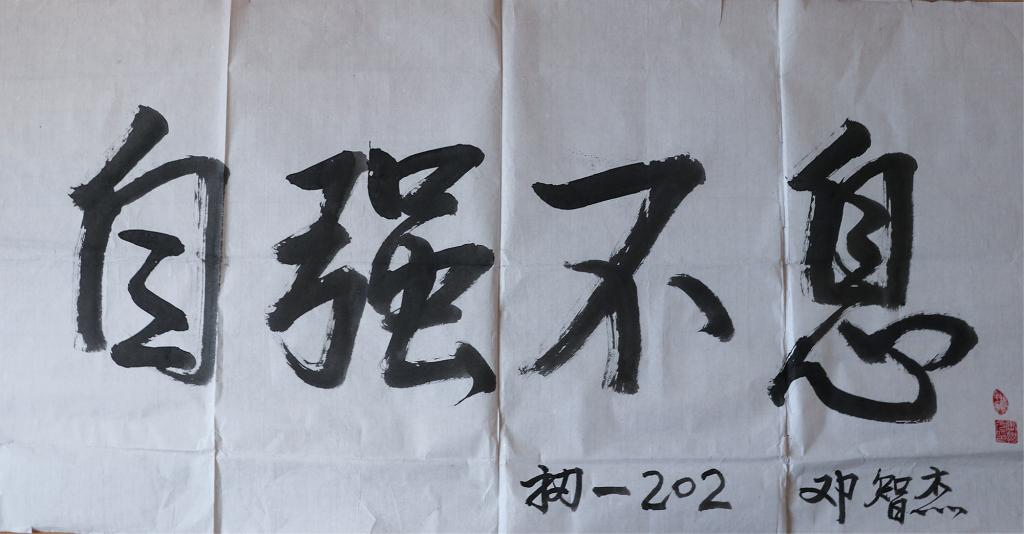 自强不息
初一202 邓智杰